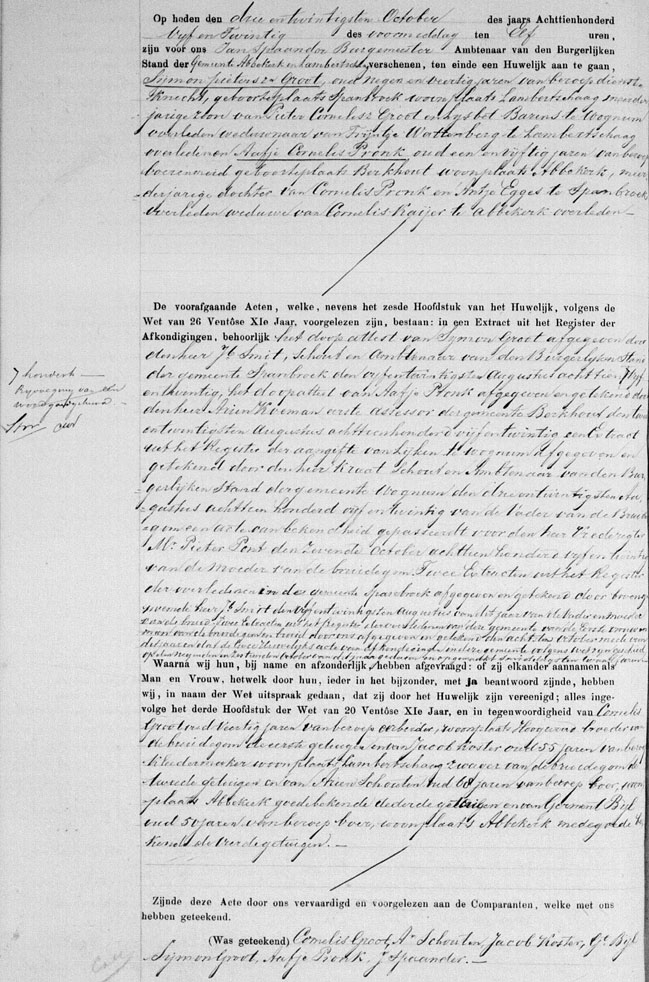 Op heden den drie en twintigsten October des jaars Achttienhonderd
Vijf en Twintig des voormiddag ten Elf uren,
zijn voor ons Jan Spaander Burgemeester Ambtenaar van den Burgerlijken
Stand der Gemeente Abbekerk en Lambertschaag verschenen, ten einde een Huwelijk aan te gaan,
Sijmon Pietersz Groot, oud negen en veertig jaren van beroep dienst
knecht, geboorteplaats Spanbroek woonplaats Lambertschaag meerder
jarige zoon van Pieter Cornelisz Groot en Lijsbet Barens te Wognum
overleden weduwnaar van Trijntje Watterberg te Lambertschaag
overleden en Aafje Cornelis Pronk, oud een en vijftig jaren van beroep
boerenmeid geboorteplaats Berkhout woonplaats Abbekerk, meer
derjarige dochter van Cornelis Pronk en Antje Egges te Spanbroek
overleden weduwe van Cornelis Kaijer te Abbekerk overleden —
De voorafgaande Acten, welke, nevens het zesde Hoofdstuk van het Huwelijk, volgens de
Wet van 26 Ventôse XIe Jaar, voorgelezen zijn, bestaan: in een Extract uit het Register der
Afkondigingen, behoorlijk het doop attest van Symon Groot afgegeven door
den heer Jb Smit, Schout en Ambtenaar van den Burgerlijken Stand
der gemeente Spanbroek den vijf en twintigsten Augustus achttien vijf
en twintig, het doopattest van Aafje Pronk afgegeven en getekend door
den heer Arien Koeman eerste assessor der gemeente Berkhout den twee
en twintigsten Augustus achttienhonderd vijf en twintig een Extract
uit het Register der aangifte van Lijken te Wognum afgegeven en
getekend door den heer Kraat Schout en Ambtenaar van den Bur
gerlijken Stand der gemeente Wognum den drie en twintigsten Au
gustus achttien honderd vijf en twintig van de Vader van de Bruide
gom een acte van bekendheid gepasseerdt voor den heer Vrederegter
Mr Pieter Pent den Zevende October achttien honderd vijf en twintig
van de Moeder van de bruidegom Twee Extracten uit het Register
der overledenen in des gemeente Spanbroek afgegeven en getekend door
heer Jb Smit den vijf en twintigsten Augustus van dit jaar van de Vader en moeder
Waarna wij hun, bij name en afzonderlijk, hebben afgevraagd: of zij elkander aannamen als
Man en Vrouw, hetwelk door hun, ieder in het bijzonder, met ja beantwoord zijnde, hebben
wij, in naam der Wet uitspraak gedaan, dat zij door het Huwelijk zijn vereenigd; alles inge-
volge het derde Hoofdstuk der Wet van 20 Ventôse XIe Jaar, en in tegenwoordigheid van Cornelis
Groot oud Veertig jaren van beroep arbeider, woonplaats Hoogwoud broeder van
de bruidegom de eerste getuigen en van Jacob Koster oud 55 jaren van beroep
Kleedermaker woonplaats Lambertschaag zwager van de bruidegom de
tweede getuigen en van Arien Schouten oud 68 jaren van beroep boer, woon
plaats Abbekerk goede bekende de derde getuigen en van Germent Bijl
oud 50 jaren van beroep boer, woonplaats Abbekerk mede goede be
kende de vierde getuigen. —
Zijnde deze Acte door ons vervaardigd en voorgelezen aan de Comparanten, welke met ons
hebben geteekend.
(Was geteekend) Cornelis Groot, An Schouten Jacob Koster, Gt Bijl
Sijmon Groot, Aafje Pronk, J Spaander. —